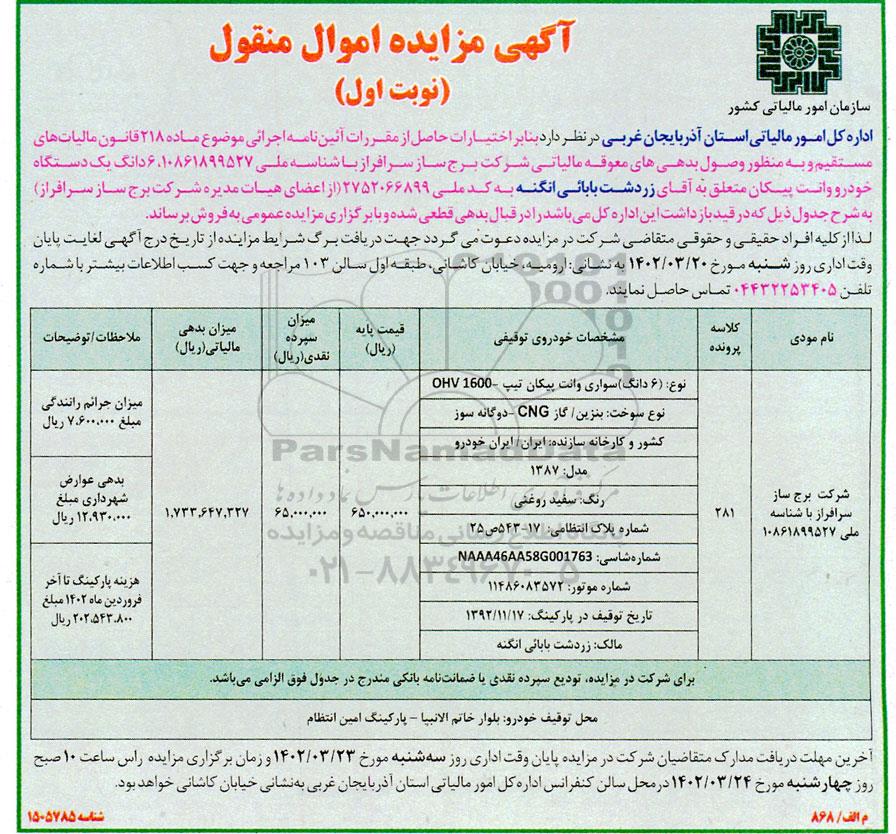 سازمان امور مالیاتی کشور
آگهی مزایده اموال منقول
(نوبت اول)
اداره کل امور مالیاتی استان آذربایجان غربی در نظر دارد بنابر اختیارات حاصل از مقررات آئین‌نامه اجرائی موضوع ماده ۲۱۸ قانون مالیات‌های
مستقیم و به منظور وصول بدهی های معوقه مالیاتی شرکت برج ساز سرافراز با شناسه ملی ۱۰۸۶۱۸۹۹۵۲۷، ۶ دانگ یک دستگاه
خودرو وانت پیکان متعلق به آقای زردشت بابائی انگنه به کد ملی ۲۷۵۲۰۶۶۸۹۹ (از اعضای هیات مدیره شرکت برج ساز سرافراز)
به شرح جدول ذیل که در قید بازداشت این اداره کل می‌باشد را در قبال بدهی قطعی شده و با برگزاری مزایده عمومی به فروش برساند.
لذا از کلیه افراد حقیقی و حقوقی متقاضی شرکت در مزایده دعوت می گردد جهت دریافت برگ شرایط مزایده از تاریخ درج آگهی لغایت پایان
وقت اداری روز شنبه مورخ ۱۴۰۲/۰۳/۲۰ به نشانی: ارومیه، خیابان کاشانی، طبقه اول سالن ۱۰۳ مراجعه و جهت کسب اطلاعات بیشتر با شماره
تلفن ۰۴۴۳۲۲۵۳۴۰۵ تماس حاصل نمایند.
نام مودی
کلاسه پرونده
مشخصات خودروی توقیفی
قیمت پایه (ریال)
میزان سپرده نقدی(ریال)
میزان بدهی مالیاتی(ریال)
ملاحظات/توضیحات
شرکت برج ساز
سرافراز با شناسه
ملی ۱۰۸۶۱۸۹۹۵۲۷
۲۸۱
نوع: (۶ دانگ)سواری وانت پیکان تیپ –OHV 1600
نوع سوخت: بنزین/ گاز CNG –دوگانه سوز
کشور و کارخانه سازنده: ایران/ ایران خودرو
مدل: ۱۳۸۷
رنگ: سفید روغنی
شماره پلاک انتظامی: ۱۷-۵۴۳ص۲۵
شماره‌شاسی: NAAA46AA58G001763
شماره موتور: ۱۱۴۸۶۰۸۳۵۷۲
تاریخ توقیف در پارکینگ: ۱۳۹۲/۱۱/۱۷
مالک: زردشت بابائی انگنه
۶۵۰,۰۰۰,۰۰۰
۶۵,۰۰۰,۰۰۰
۱,۷۳۳,۶۴۷,۳۲۷
میزان جرائم رانندگی
مبلغ ۷,۶۰۰,۰۰۰ ریال
بدهی عوارض
شهرداری مبلغ
۱۲,۹۳۰,۰۰۰ ریال
هزینه پارکینگ تا آخر
فروردین ماه ۱۴۰۲ مبلغ
۲۰۲,۵۴۳,۸۰۰ ریال
برای شرکت در مزایده، تودیع سپرده نقدی یا ضمانت‌نامه بانکی مندرج در جدول فوق الزامی می‌باشد.
محل توقیف خودرو: بلوار خاتم الانبیا – پارکینگ امین انتظام
آخرین مهلت دریافت مدارک متقاضیان شرکت در مزایده پایان وقت اداری روز سه‌شنبه مورخ ۱۴۰۲/۰۳/۲۳ و زمان برگزاری مزایده راس ساعت ۱۰ صبح
روز چهارشنبه مورخ ۱۴۰۲/۰۳/۲۴ در محل سالن کنفرانس اداره کل امور مالیاتی استان آذربایجان غربی به‌نشانی خیابان کاشانی خواهد بود.
م الف/ ۸۶۸
شناسه ۱۵۰۵۷۸۵
ParsNamadData
پایگاه اطلاع رسانی مناقصه و مزایده
۰۲۱-۸۸۳۴۹۶۷۰-۵